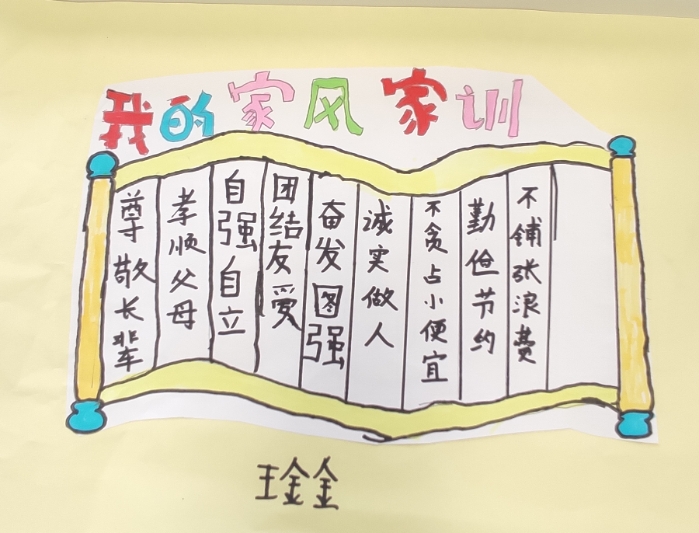 我的家风家训
尊敬长辈
孝顺父母
自强自立
团结友爱
奋发图强
诚实做人
不贪占小便宜
勤俭节约
不铺张浪费
王金金